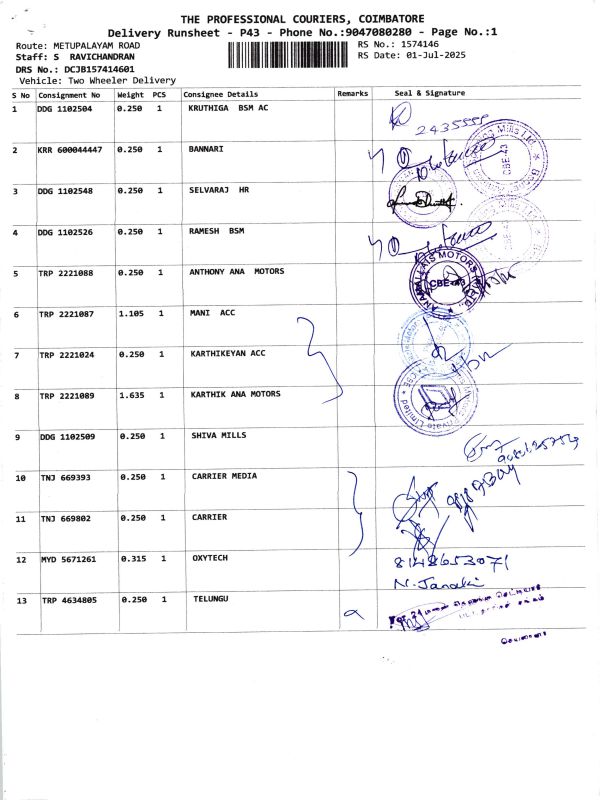 THE PROFESSIONAL COURIERS, COIMBATORE
Delivery Runsheet - P43 - Phone No.:9047080280 - Page No.:1
Route: METUPALAYAM ROAD
RS No.: 1574146
Staff: S RAVICHANDRAN
RS Date: 01-Jul-2025
DRS No.: DCJB157414601
Vehicle: Two Wheeler Delivery
S No Consignment No Weight PCS Consignee Details Remarks Seal & Signature
1 DDG 1102504 0.250 1 KRUTHIGA BSM AC
2435555
2 KRR 600044447 0.250 1 BANNARI
CBE-43
3 DDG 1102548 0.250 1 SELVARAJ HR
4 DDG 1102526 0.250 1 RAMESH BSM
5 TRP 2221088 0.250 1 ANTHONY ANA MOTORS
ANAMALLAIS MOTORS
CBE-43
6 TRP 2221087 1.105 1 MANI ACC
7 TRP 2221024 0.250 1 KARTHIKEYAN ACC
8 TRP 2221089 1.635 1 KARTHIK ANA MOTORS
Private Limited
9 DDG 1102509 0.250 1 SHIVA MILLS
10 TNJ 669393 0.250 1 CARRIER MEDIA
11 TNJ 669802 0.250 1 CARRIER
12 MYD 5671261 0.315 1 OXYTECH
8148653071
N. Janaki
13 TRP 4634805 0.250 1 TELUNGU